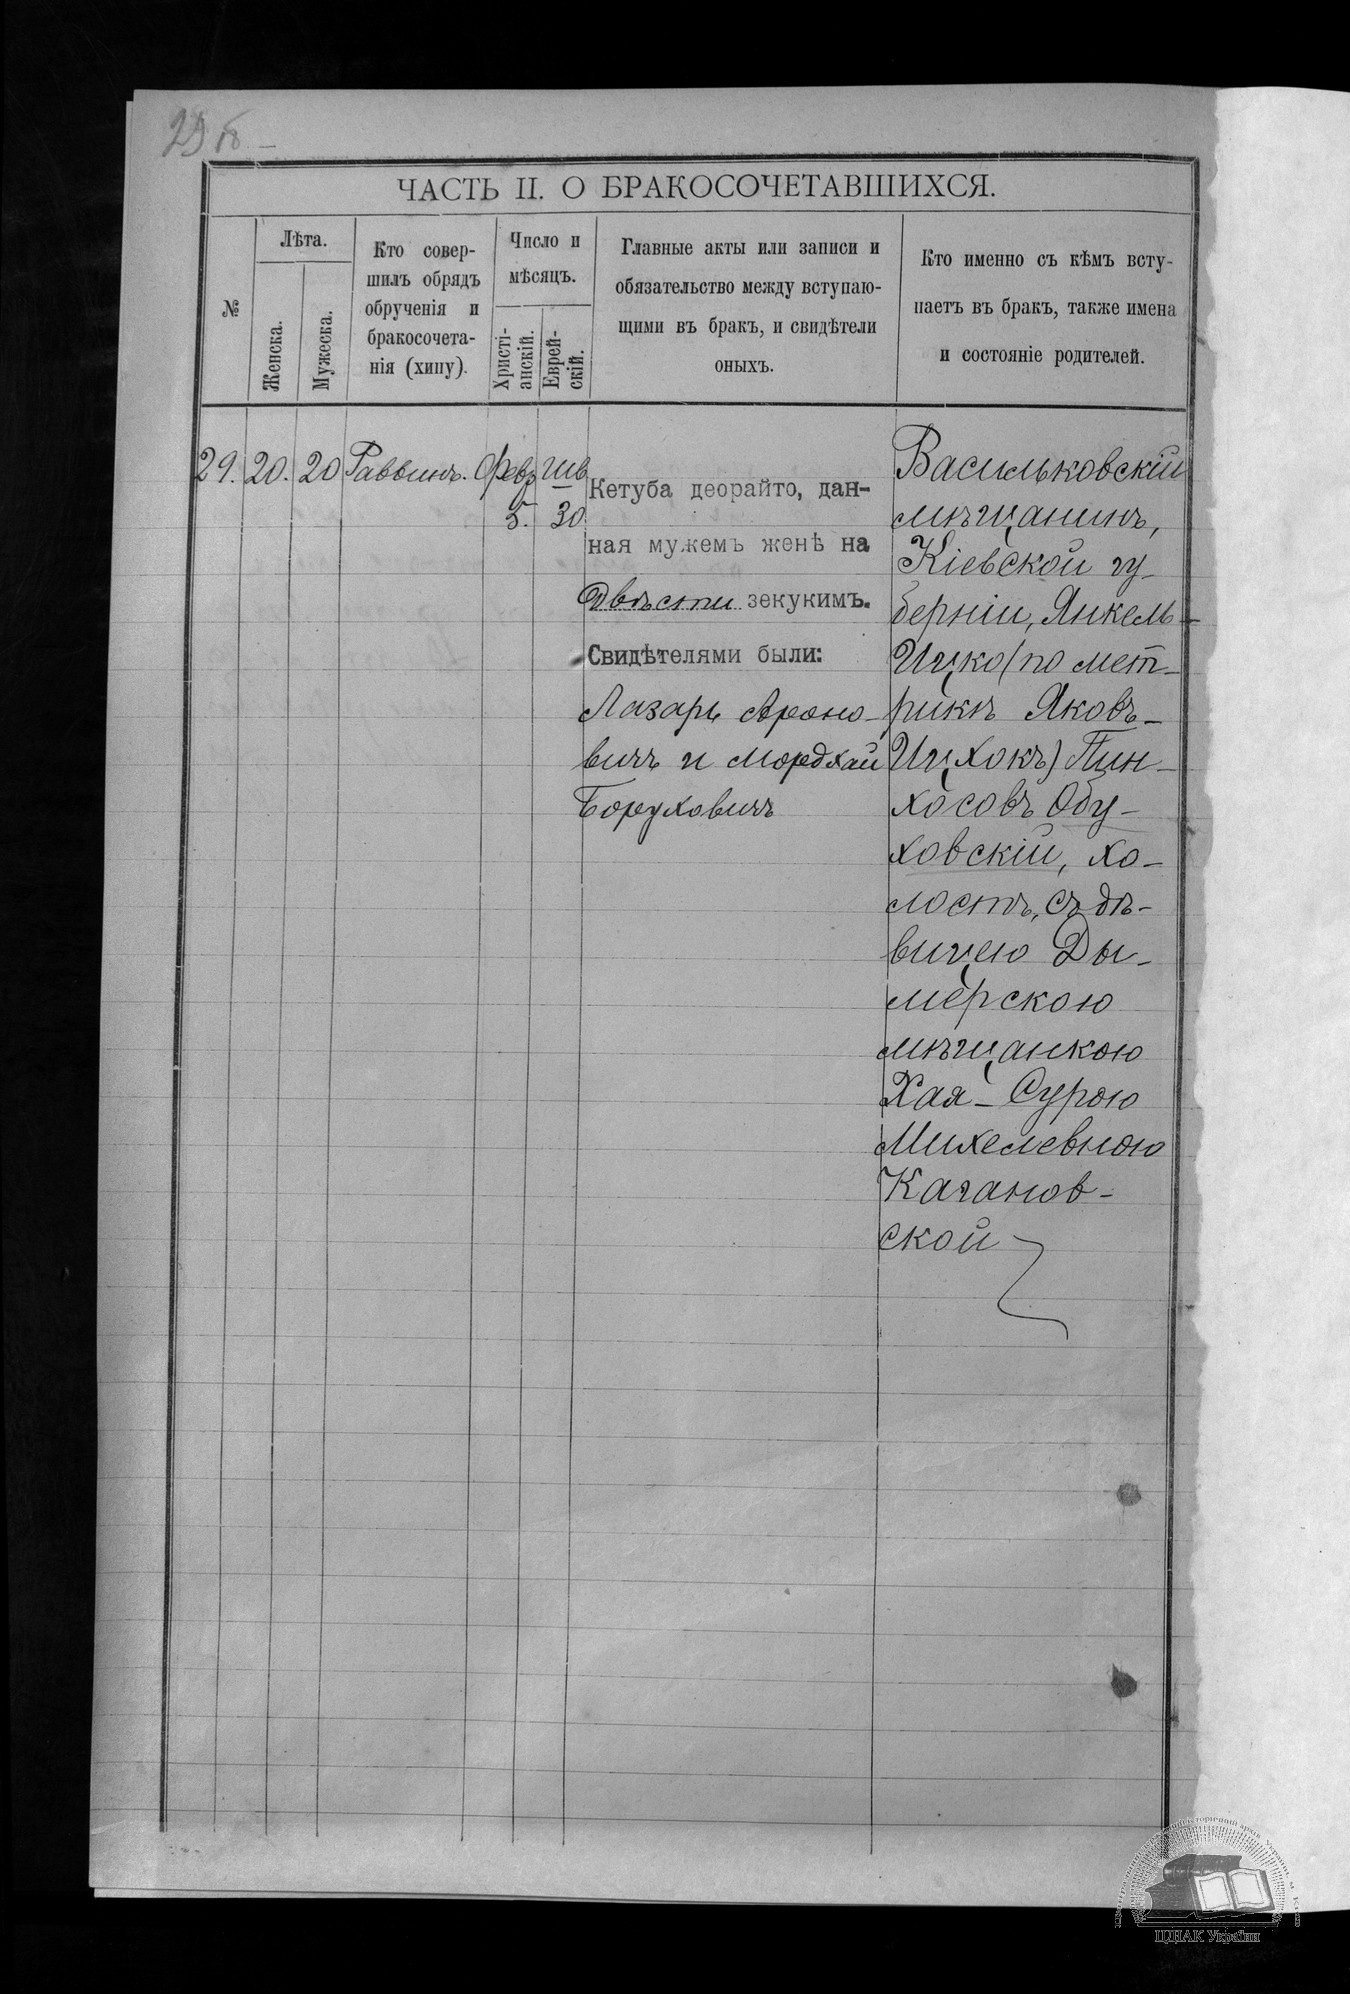 ЧАСТЬ II. О БРАКОСОЧЕТАВШИХСЯ.
№
Лѣта.
Женска.
Мужеска.
Кто совер-
шилъ обрядъ
обрученія и
бракосочета-
нія (хипу).
Число и
мѣсяцъ.
Христі-
анскій.
Еврей-
скій.
Главные акты или записи и
обязательство между вступаю-
щими въ бракъ, и свидѣтели
оныхъ.
Кто именно съ кѣмъ всту-
паетъ въ бракъ, также имена
и состояніе родителей.
29. 20. 20 Раввинъ. Февр 5. Шв 30
Кетуба деорайто, дан-
ная мужемъ женѣ на
двѣсти зекукимъ.
Свидѣтелями были:
Лазарь Ароно-
вичъ и Мордхай
Боруховичъ
Васильковскій
мѣщанинъ,
Кіевской гу-
берніи, Янкель-
Ицко (по мет-
рикѣ Яковъ-
Ицхокъ) Пин-
хосовъ Обу-
ховскій, хо-
лостъ, съ дѣ-
вицею Ды-
мерскою
мѣщанкою
Хая-Сурою
Михелевною
Каганов-
ской
ЦДІАК України